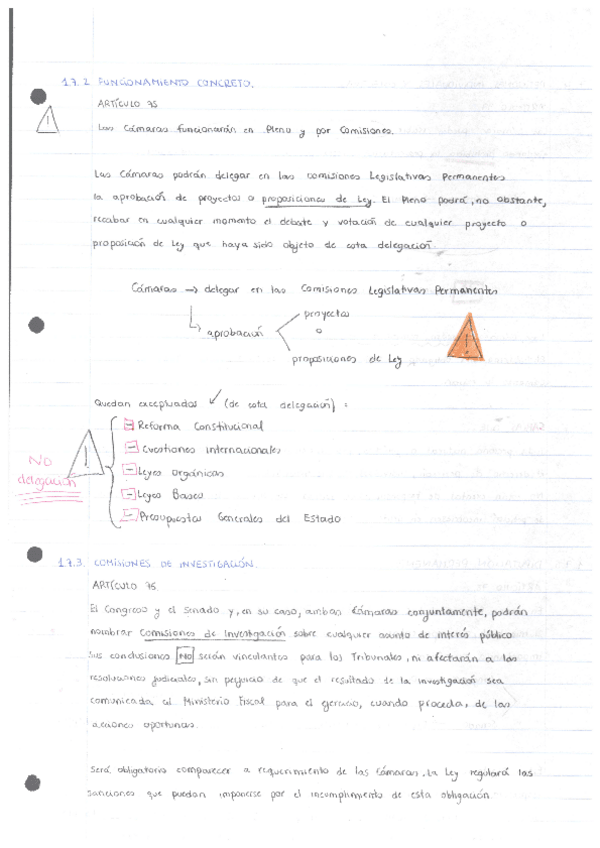 1.7.2 FUNCIONAMIENTO CONCRETO.
ARTÍCULO 75
Las Cámaras funcionarán en Pleno y por Comisiones.
Las Cámaras podrán delegar en las comisiones Legislativas Permanentes
la aprobación de proyectos o proposiciones de Ley. El Pleno podrá, no obstante,
recabar en cualquier momento el debate y votación de cualquier proyecto o
proposición de Ley que haya sido objeto de esta delegación.
Cámaras → delegar en las Comisiones Legislativas Permanentes
proyectos
aprobación o
proposiciones de Ley
!
Quedan exceptuados (de esta delegación):
- Reforma Constitucional
- Cuestiones internacionales
NO
delegación
!
- Leyes Orgánicas
- Leyes Bases
- Presupuestos Generales del Estado
1.7.3. COMISIONES DE INVESTIGACIÓN.
ARTÍCULO 76.
El Congreso y el Senado y, en su caso, ambas Cámaras conjuntamente, podrán
nombrar Comisiones de Investigación sobre cualquier asunto de interés público
Sus conclusiones NO serán vinculantes para los Tribunales, ni afectarán a las
resoluciones judiciales, sin perjuicio de que el resultado de la investigación sea
comunicada al Ministerio Fiscal para el ejercicio, cuando proceda, de las
acciones oportunas.
Será obligatorio comparecer a requerimiento de las Cámaras. La Ley regulará las
sanciones que puedan imponerse por el incumplimiento de esta obligación.